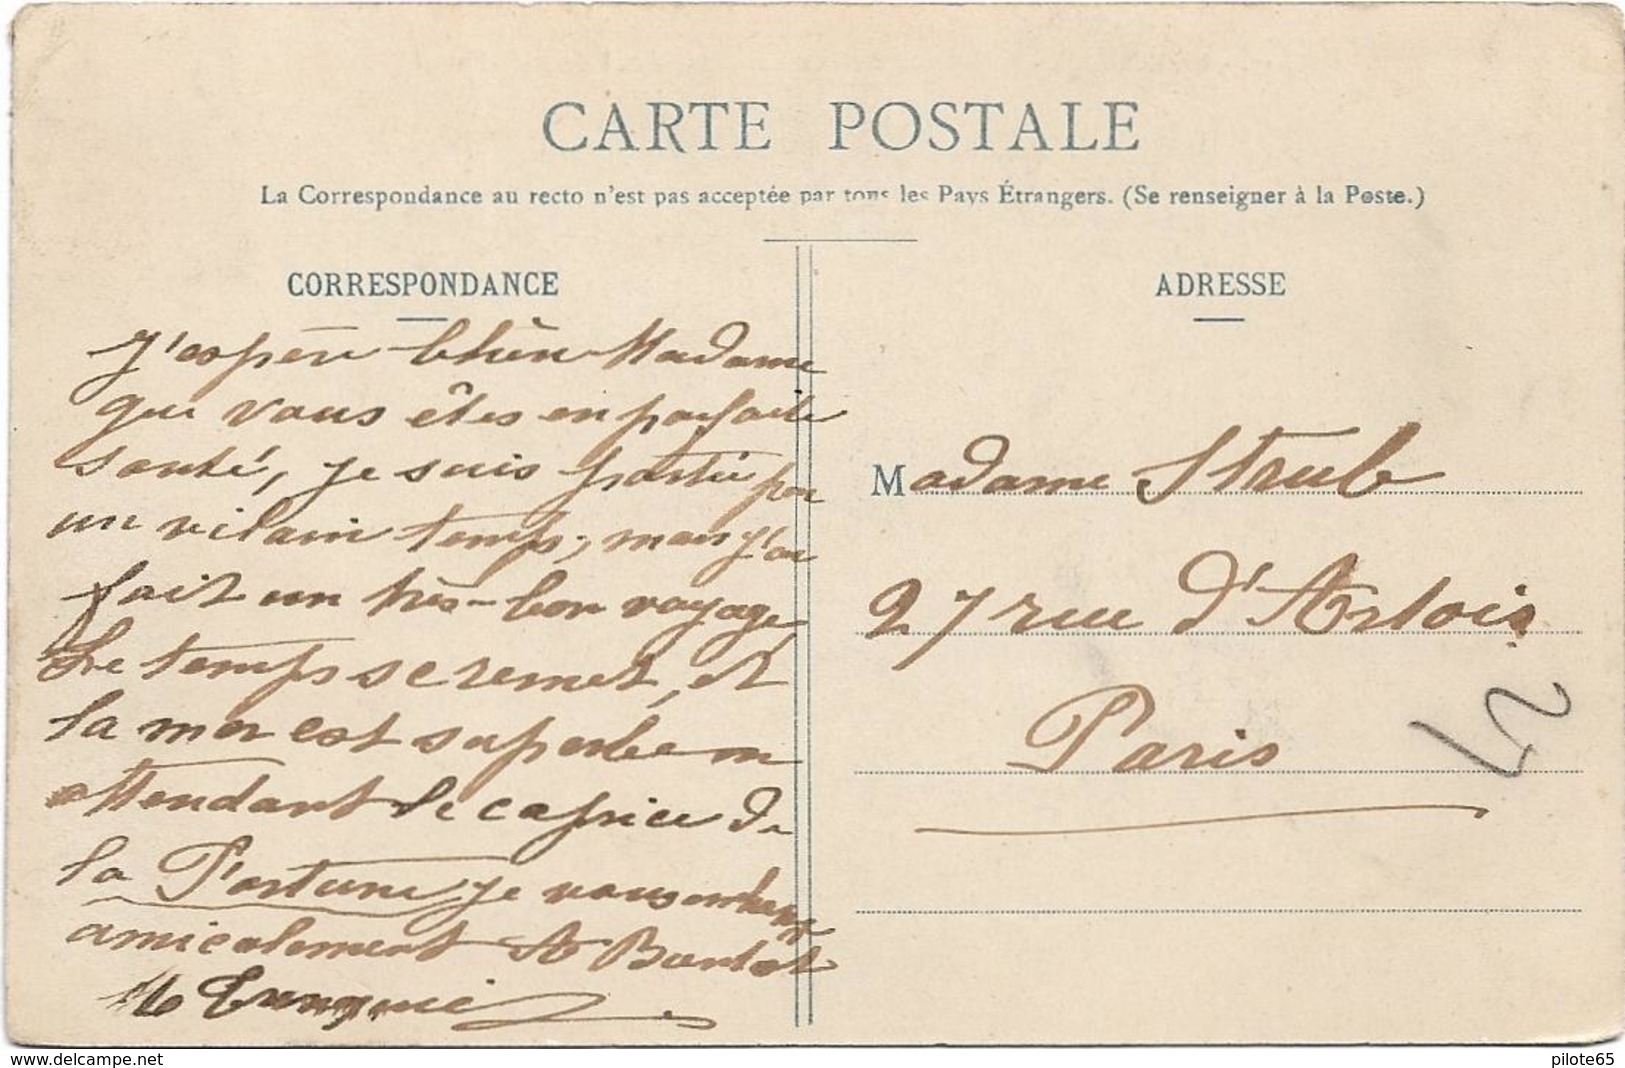 CARTE POSTALE
La Correspondance au recto n'est pas acceptée par tous les Pays Étrangers. (Se renseigner à la Poste.)
CORRESPONDANCE
J'espère bhièn Madame
que vous êtes en parfaite
santé, je suis partie par
un vilain temps, mais j'ai
fait un très-bon voyage
Le temps se remet, et
la mer est superbe en
attendant le caprice de
la Fortune je vous
amicalement
ADRESSE
Madame Strub
27 rue d'Artois
Paris
27
delcampe.net
pilote65